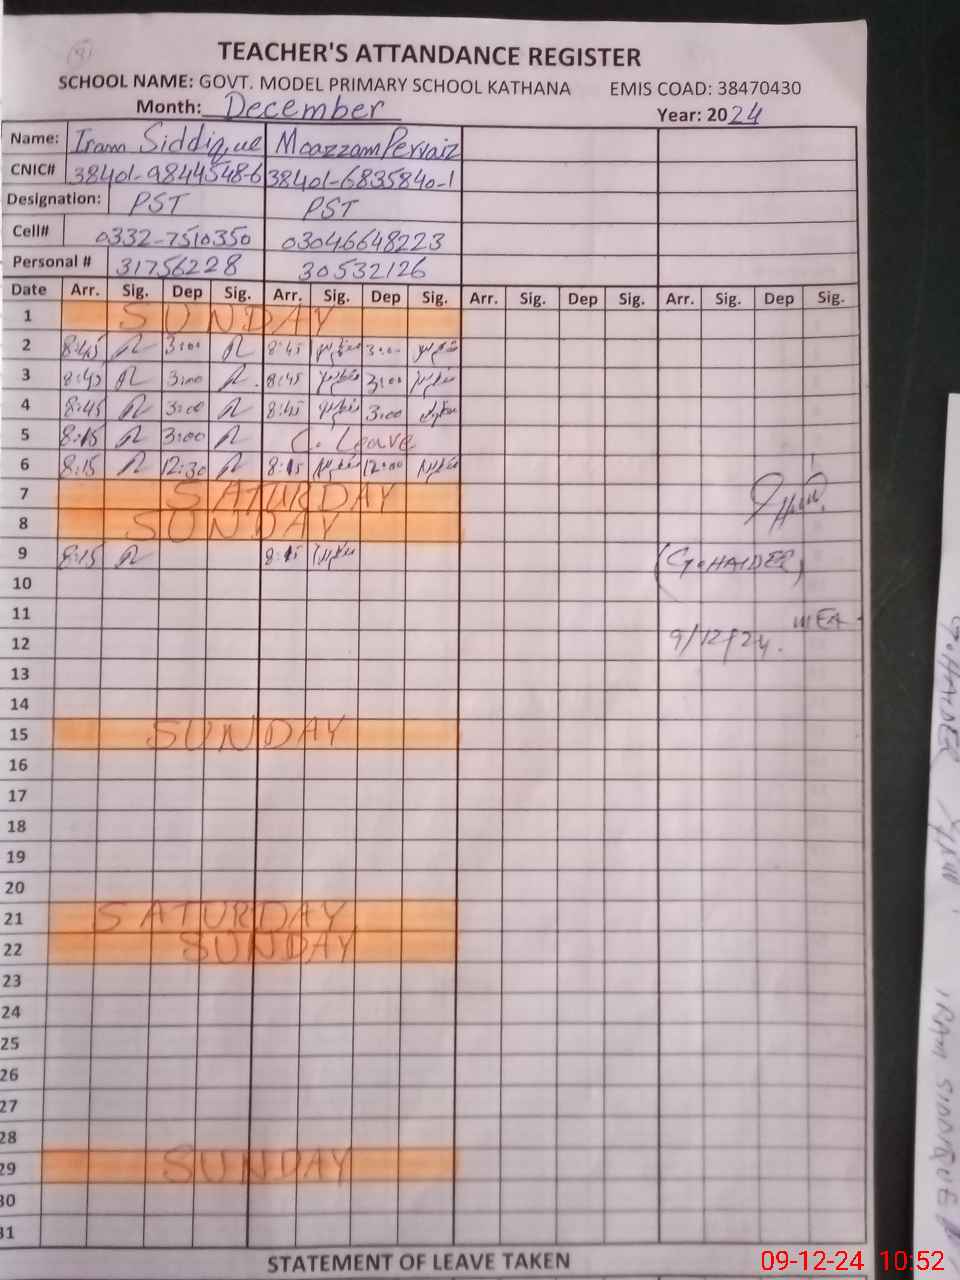 TEACHER'S ATTANDANCE REGISTER
SCHOOL NAME: GOVT. MODEL PRIMARY SCHOOL KATHANA EMIS COAD: 38470430
Month: December Year: 2024
Name: Iram Siddique Moazzam Pervaiz
CNIC# 38401-9844548-6 38401-6835840-1
Designation: PST PST
Cell# 0332-7510350 03046648223
Personal # 31756228 30532126
Date Arr. Sig. Dep Sig. Arr. Sig. Dep Sig. Arr. Sig. Dep Sig. Arr. Sig. Dep Sig.
1 SUNDAY
2 8:45 3:00 8:45 3:00
3 8:45 3:00 8:45 3:00
4 8:45 3:00 8:45 3:00
5 8:15 3:00 C. Leave
6 8:15 12:30 8:15 12:00
7 SATURDAY
8 SUNDAY
9 8:15 8:15 (G.HAIDER)
10
11 MEA
12 9/12/24.
13
14
15 SUNDAY
16
17
18
19
20
21 SATURDAY
22 SUNDAY
23
24
25
26
27
28
29 SUNDAY
30
31
STATEMENT OF LEAVE TAKEN
09-12-24 10:52
G.HAIDER
IRAM SIDDIQUE